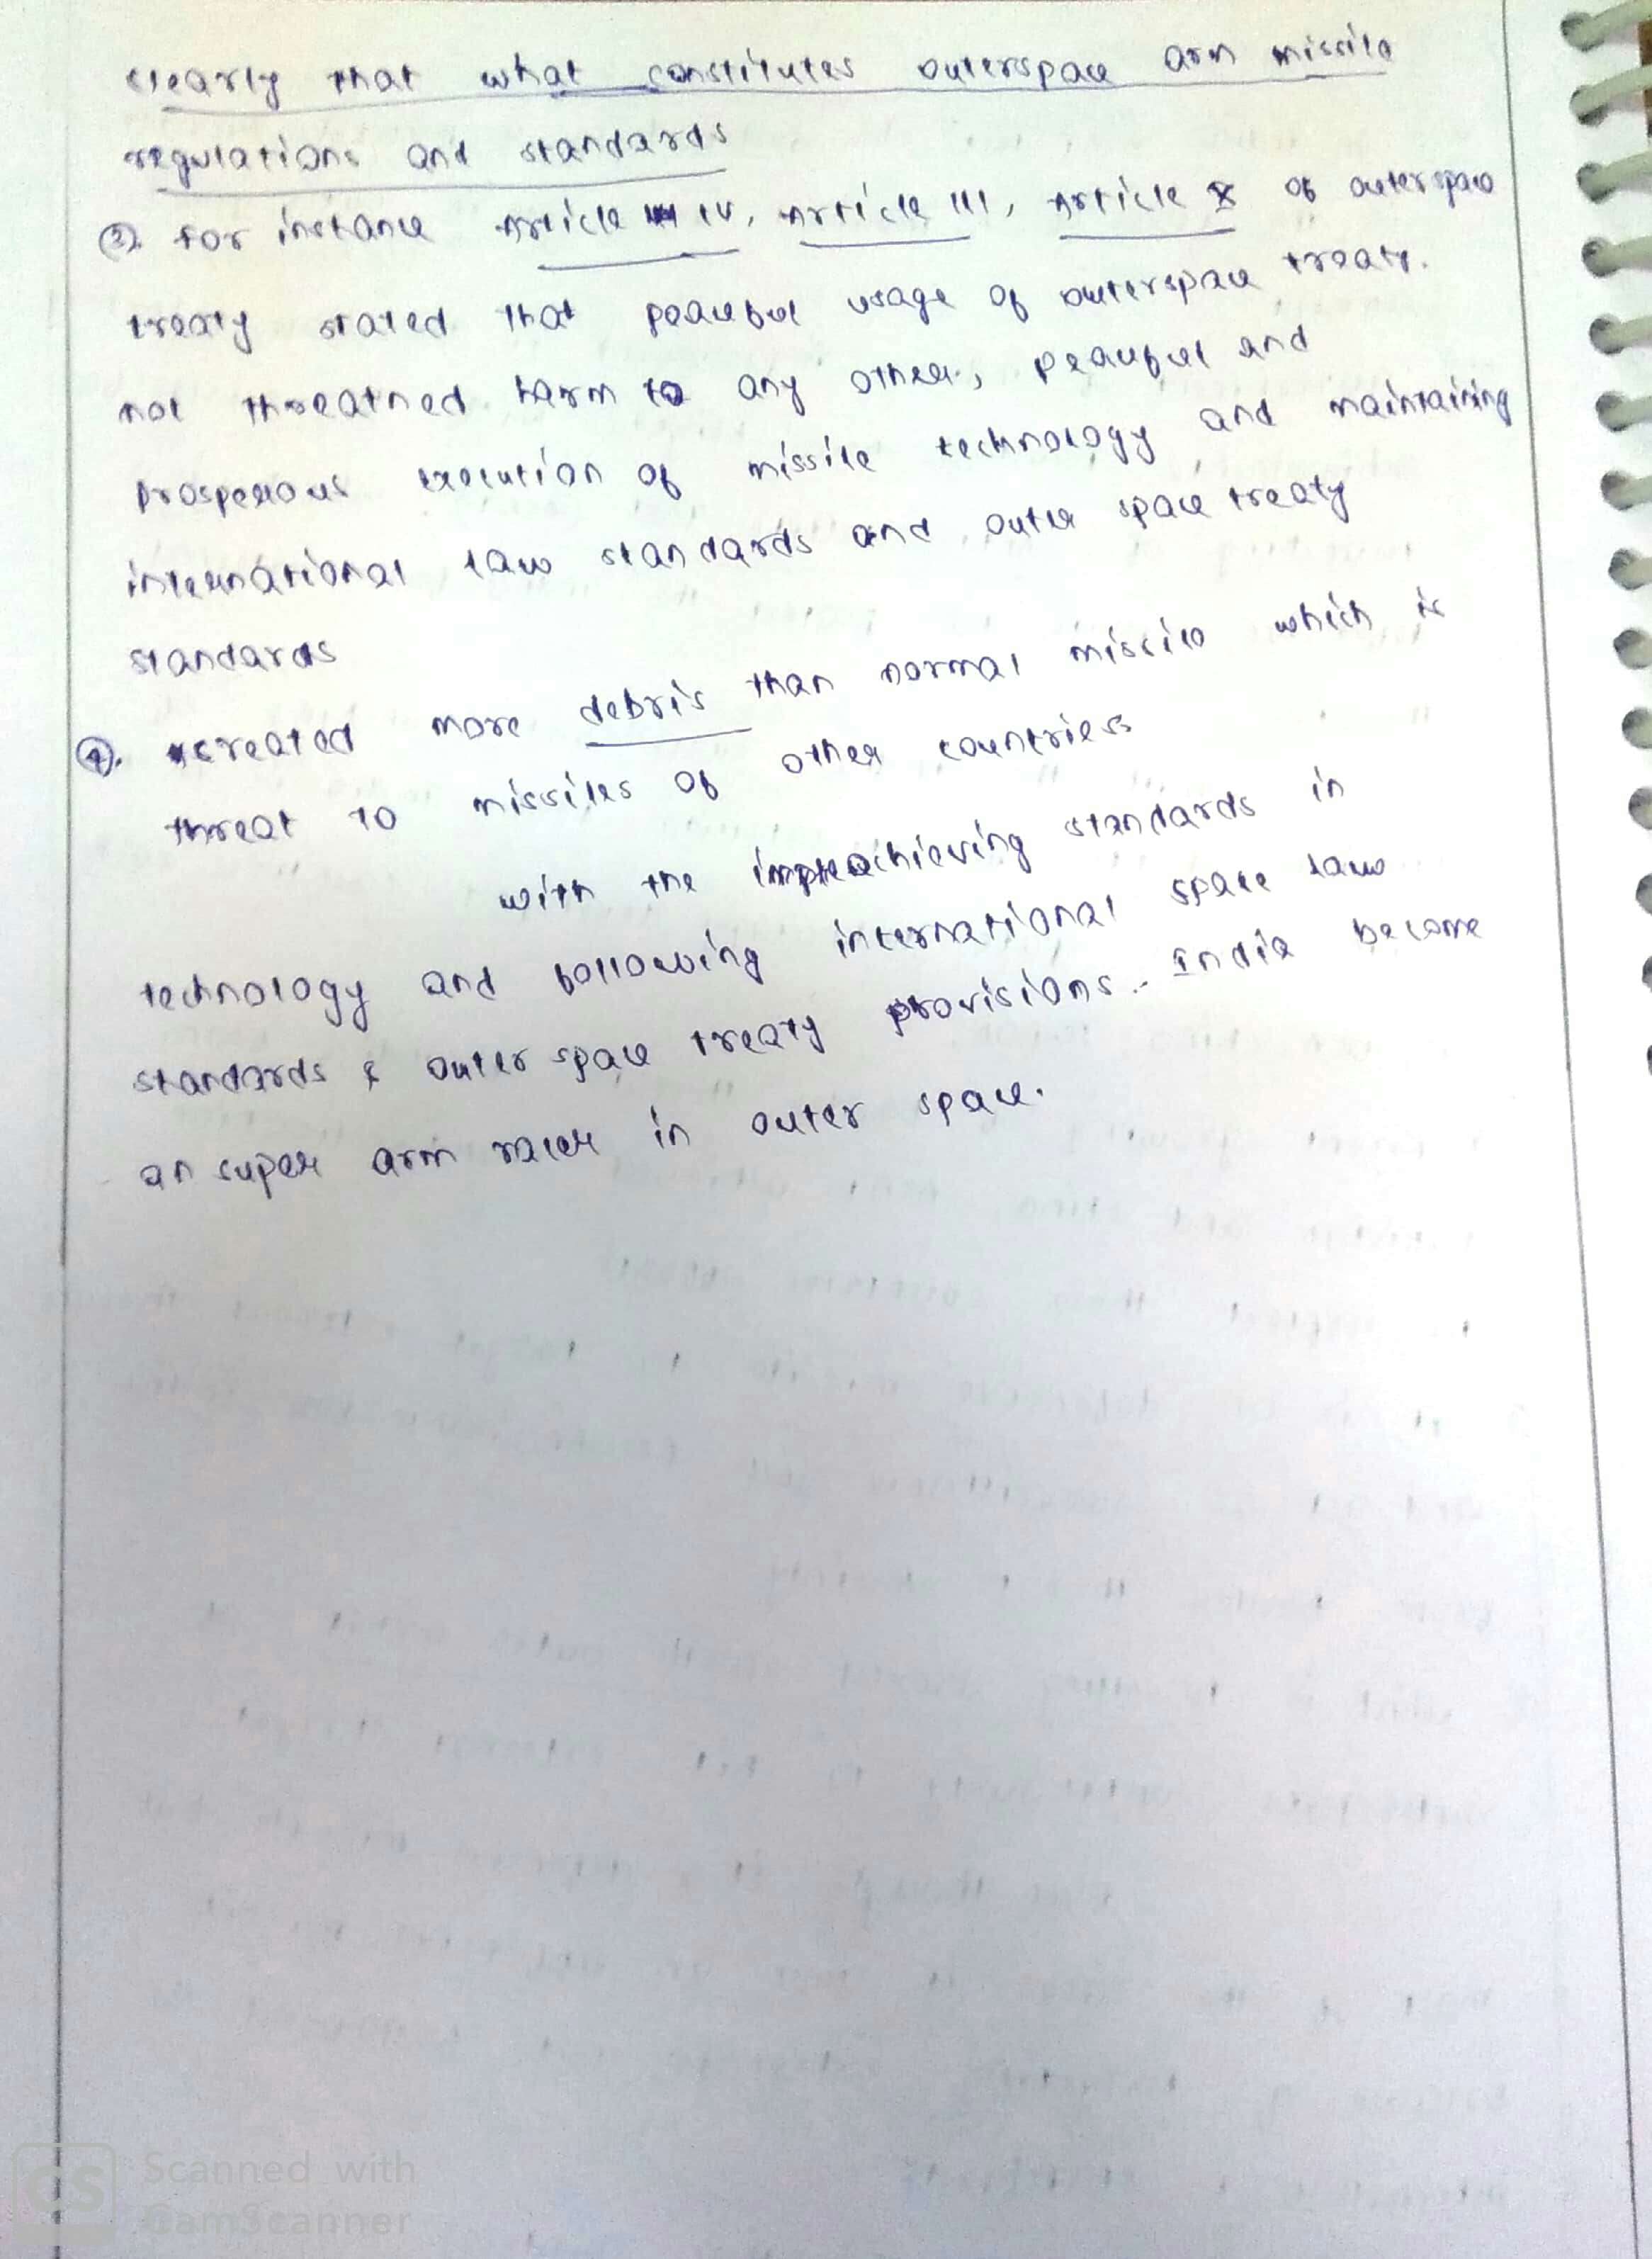 clearly that what constitutes outerspace arm missile
regulations and standards
③. for instance Article IV, Article III, Article X of outerspace
treaty stated that peaceful usage of outerspace treaty.
not threatned harm to any other, peaceful and
prosperous execution of missile technology and maintaining
international law standards and outer space treaty
standards
④. created more debris than normal missile which is
threat to missiles of other countries
with the achieving standards in
technology and following international space law
standards & outer space treaty provisions. India become
an super arm racer in outer space.
CS Scanned with
CamScanner